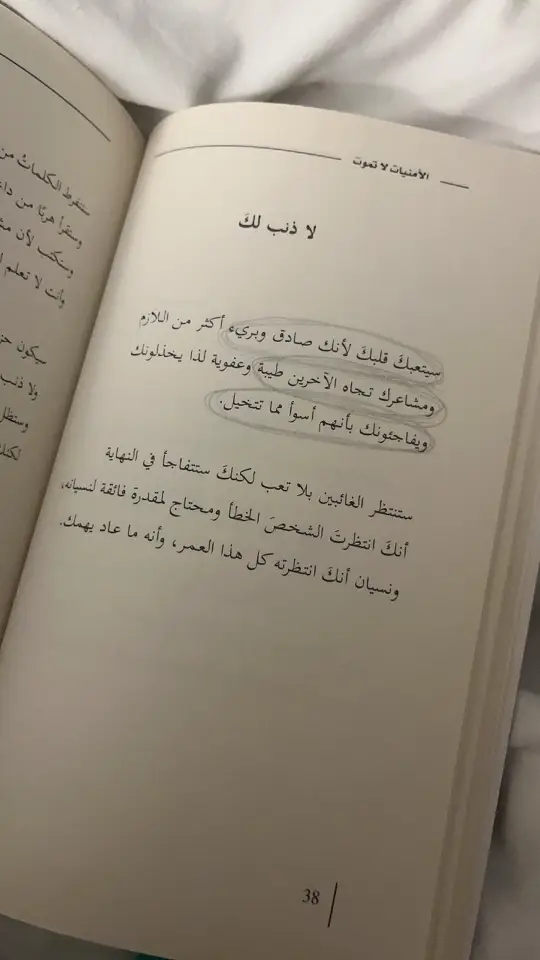 الأمنيات لا تموت
لا ذنب لكَ
سيتعبكَ قلبكَ لأنك صادق وبريء أكثر من اللازم
ومشاعرك تجاه الآخرين طيبة وعفوية لذا يخذلونك
ويفاجئونك بأنهم أسوأ مما تتخيل.
ستنتظر الغائبين بلا تعب لكنكَ ستتفاجأ في النهاية
أنكَ انتظرتَ الشخصَ الخطأ ومحتاج لمقدرة فائقة لنسيانه،
ونسيان أنكَ انتظرته كل هذا العمر، وأنه ما عاد يهمك.
38
ستنفرط الكلماتُ من
وستقرأ هربًا من
وستكتب لأن
وأنت لا تعلم
سيكون
ولا ذنب
وستظل
لكنك